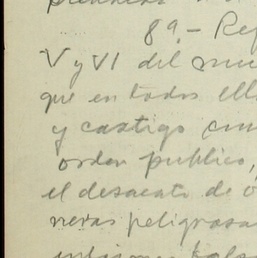 89.- Ref
V y VI del nue
que en todos ell
y castigo con
orden publico,
el desacato de o
neras peligrosa